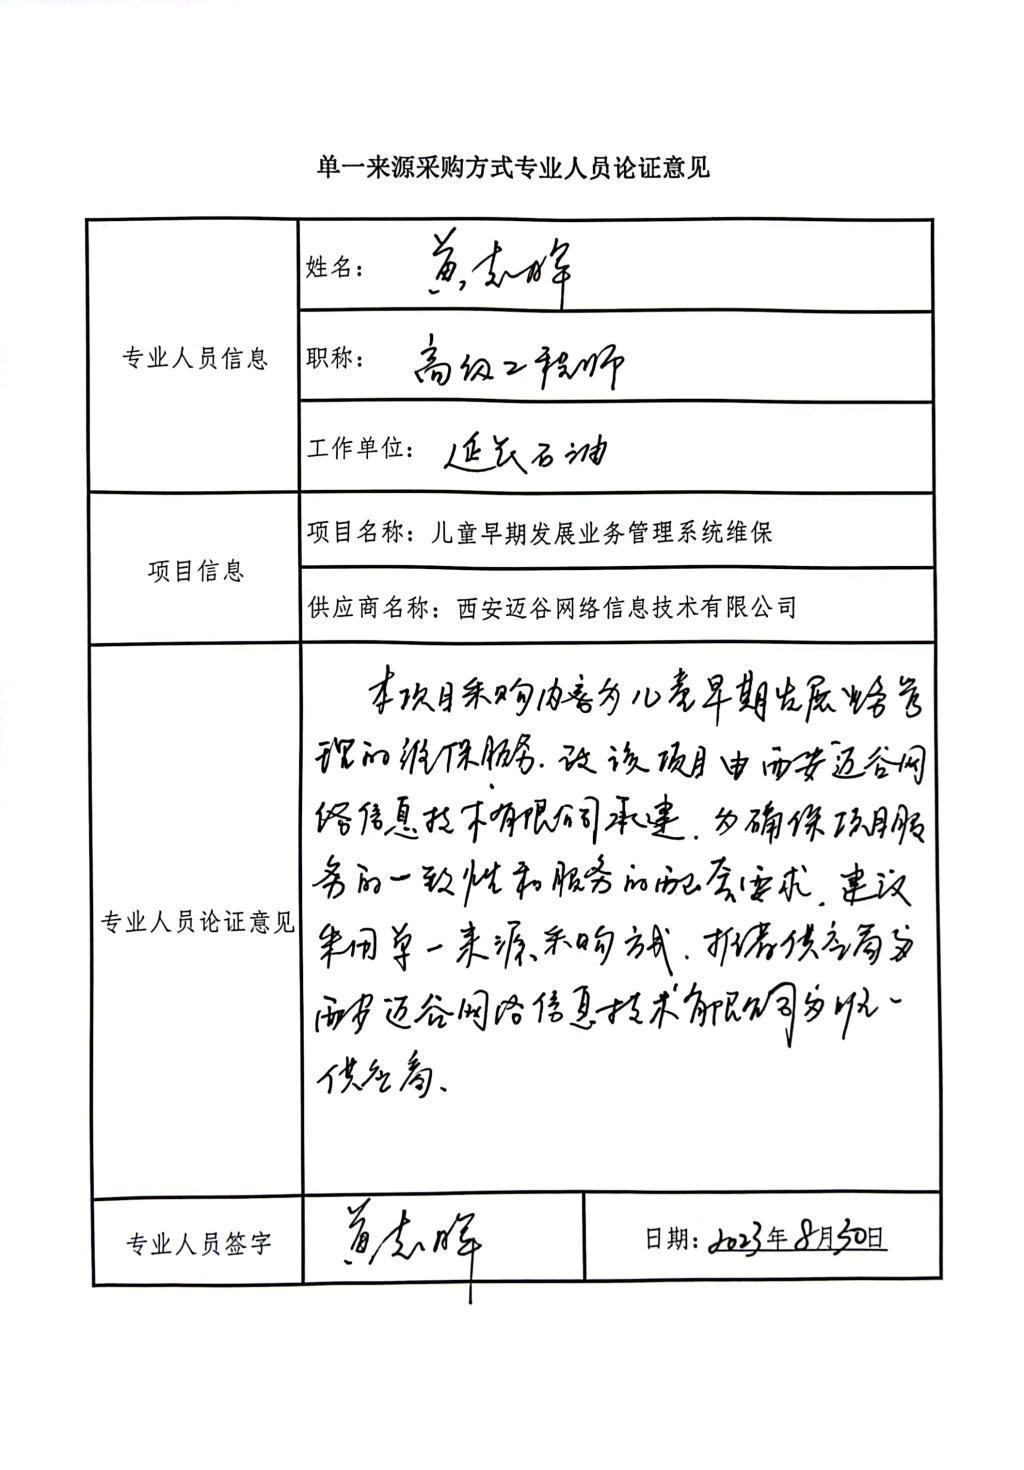 单一来源采购方式专业人员论证意见
专业人员信息
姓名： 黄志晖
职称： 高级工程师
工作单位： 延长石油
项目信息
项目名称：儿童早期发展业务管理系统维保
供应商名称：西安迈谷网络信息技术有限公司
专业人员论证意见
本项目采购内容为儿童早期发展业务管
理的维保服务．该项目由西安迈谷网
络信息技术有限公司承建．为确保项目服
务的一致性和服务的配套要求．建议
采用单一来源采购方式．拟 供应商为
西安迈谷网络信息技术有限公司为唯一
供应商、
专业人员签字 黄志晖
日期：2023年8月30日